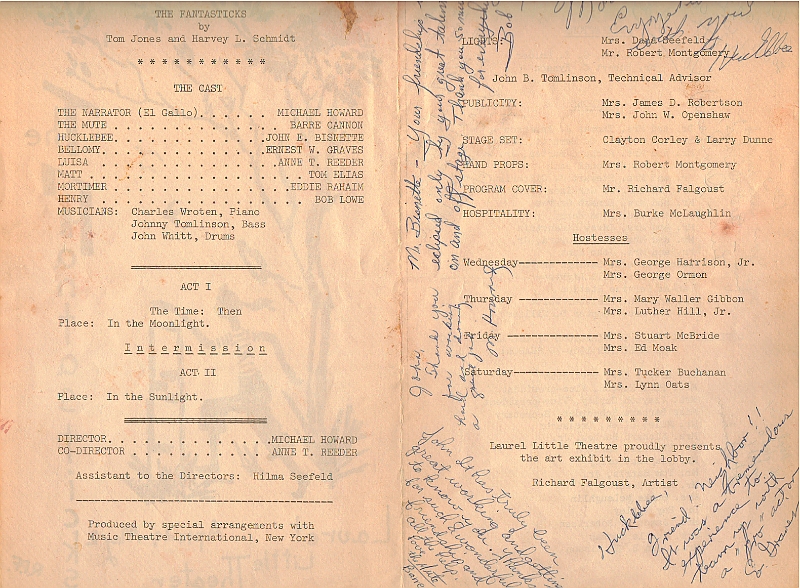 THE FANTASTICKS
by
Tom Jones and Harvey L. Schmidt
* * * * * * * * * * *
THE CAST
THE NARRATOR (El Gallo) . . . . . . MICHAEL HOWARD
THE MUTE . . . . . . . . . . . . . BARRE CANNON
HUCKLEBEE . . . . . . . . . . . . JOHN E. BISNETTE
BELLOMY . . . . . . . . . . . . . ERNEST W. GRAVES
LUISA . . . . . . . . . . . . . . ANNE T. REEDER
MATT . . . . . . . . . . . . . . . TOM ELIAS
MORTIMER . . . . . . . . . . . . . EDDIE RAHAIM
HENRY . . . . . . . . . . . . . . BOB LOWE
MUSICIANS: Charles Wroten, Piano
Johnny Tomlinson, Bass
John Whitt, Drums
ACT I
The Time: Then
Place: In the Moonlight.
Intermission
ACT II
Place: In the Sunlight.
DIRECTOR . . . . . . . . . . . . . MICHAEL HOWARD
CO-DIRECTOR . . . . . . . . . . . ANNE T. REEDER
Assistant to the Directors: Hilma Seefeld
Produced by special arrangements with
Music Theatre International, New York
Enjoyed
with you
LIGHTS: Mrs. Dana Seefeld
Mr. Robert Montgomery
John B. Tomlinson, Technical Advisor
PUBLICITY: Mrs. James D. Robertson
Mrs. John W. Openshaw
STAGE SET: Clayton Corley & Larry Dunne
HAND PROPS: Mrs. Robert Montgomery
PROGRAM COVER: Mr. Richard Falgoust
HOSPITALITY: Mrs. Burke McLaughlin
Hostesses
Wednesday-------------- Mrs. George Harrison, Jr.
Mrs. George Ormon
Thursday -------------- Mrs. Mary Waller Gibbon
Mrs. Luther Hill, Jr.
Friday ---------------- Mrs. Stuart McBride
Mrs. Ed Moak
Saturday--------------- Mrs. Tucker Buchanan
Mrs. Lynn Oats
* * * * * * * * *
Laurel Little Theatre proudly presents
the art exhibit in the lobby.
Richard Falgoust, Artist
Mr. Bisnette - Your friendship is
eclipsed only by your great talent
on and off stage. Thank you so much
for everything
Bob
John,
Thank you
for working
hard and doing
a great job
M. Howard
John It has truly been
great working and getting
to know you. I Thank you
for such a wonderful
friendship and
all the help.
Hucklebee,
Friend! Neighbor!!
It was a tremendous
experience to
team up with
a "pro" actor
E. Graves